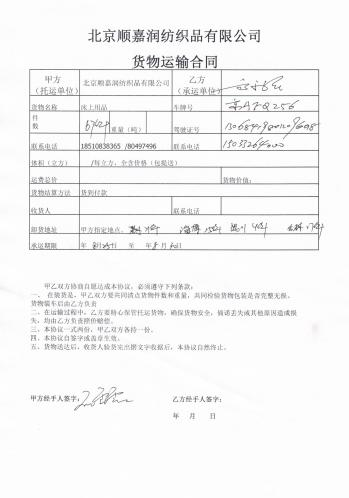 北京顺嘉润纺织品有限公司
货物运输合同
甲方
（托运单位） 北京顺嘉润纺织品有限公司 乙方
（承运单位）
货物名称 床上用品 车牌号
件
数 重量（吨） 驾驶证号
联系电话 18510838365 /80497496 联系电话
体积（立方） /每立方，全含价格（包提送）
运费总价 货物价值：
货物结算方法 货到付款
收货人 联系电话
卸货地址 甲方指定地点，
承运期限 年 月 日 至 年 月 日
甲乙双方协商自愿达成本协议，必须遵守下列条款：
一、在装货是，甲乙双方要共同清点货物件数和重量，共同检验货物包装是否完整无损，
货物装车后由乙方负责
二、在运输过程中，乙方要精心保管托运货物，确保货物安全，倘诺丢失或其他原因造成损
失，均由乙方负责照价赔偿。
三、本协议一式两份，甲乙双方各持一份。
四、本协议自签字或盖章生效。
五、货物送达后，收货人验货完出据文字收据后，本协议自然终止。
甲方经手人签字： 乙方经手人签字：
年 月 日